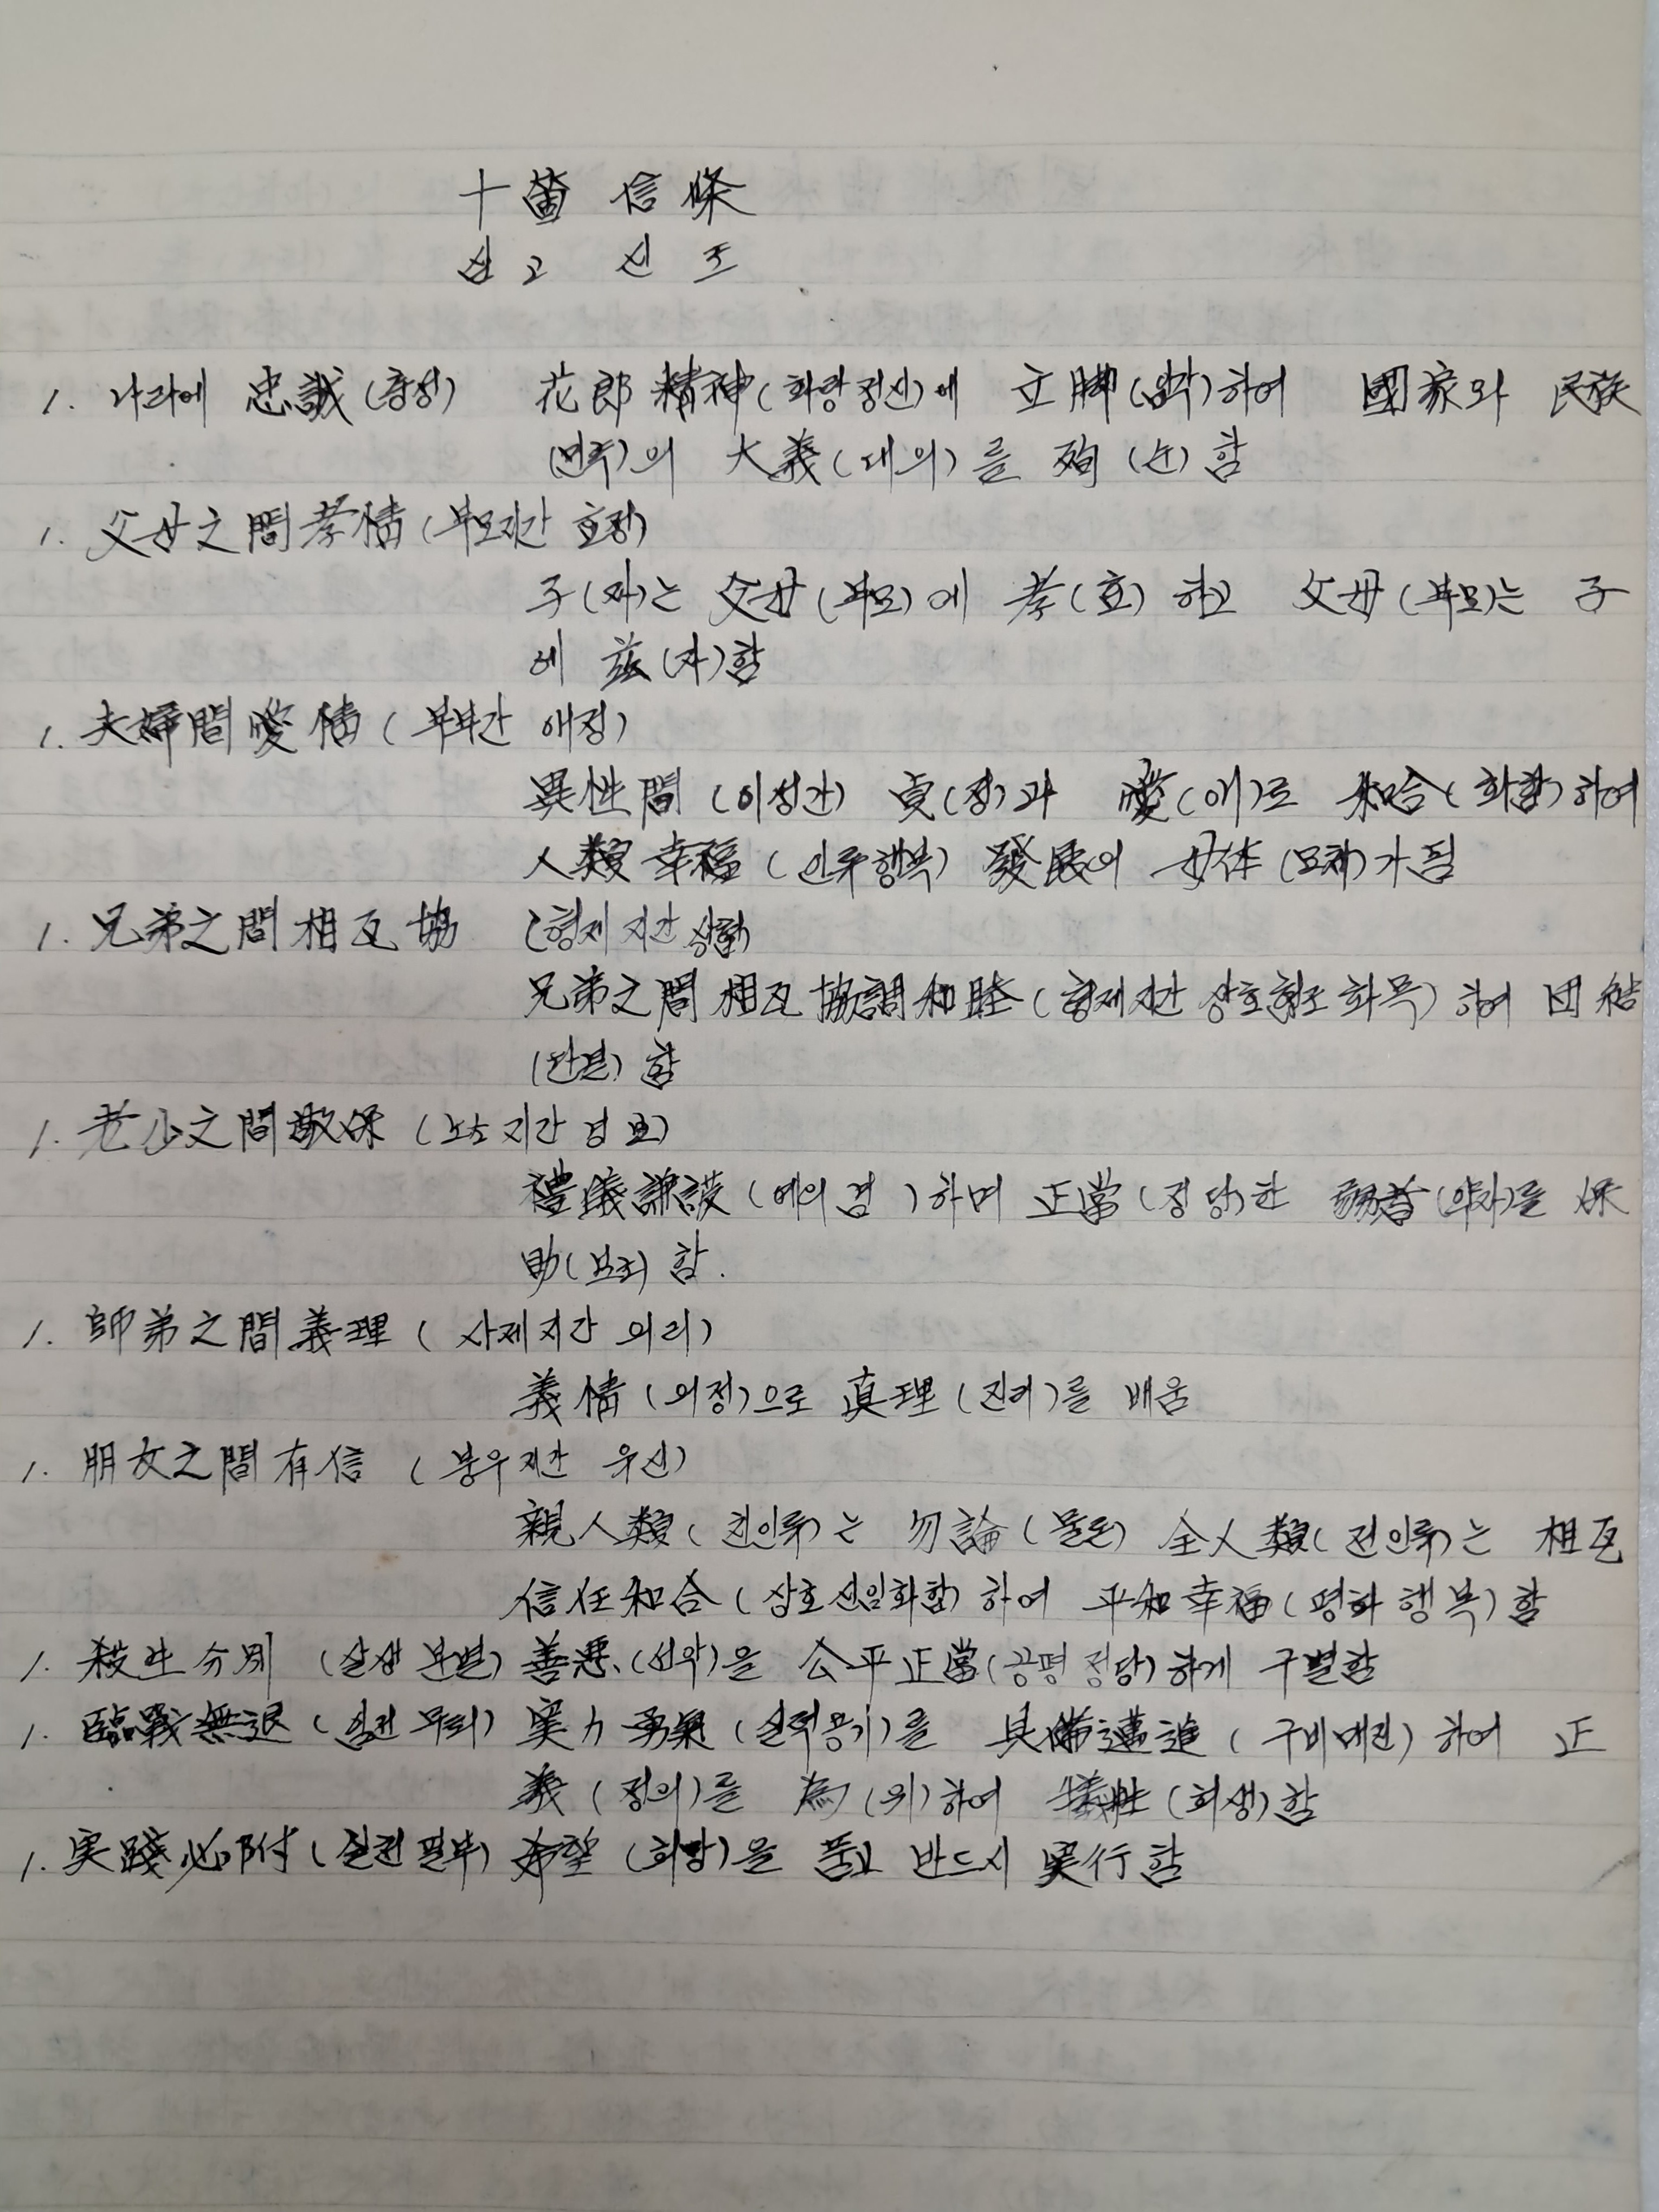 十箇 信條
십고 신조
1. 나라에 忠誠(충성) 花郎精神(화랑정신)에 立脚(입각)하여 國家와 民族
(민족)의 大義(대의)를 殉(순)함
1. 父母之間孝情(부모지간 효정)
子(자)는 父母(부모)에 孝(효)하고 父母(부모)는 子
에 玆(자)함
1. 夫婦間愛情(부부간 애정)
異性間(이성간) 貞(정)과 愛(애)로 和合(화합)하여
人類幸福(인류행복) 發展의 母体(모체)가 됨
1. 兄弟之間相互協 (형제지간
兄弟之間相互協調和睦(형제지간 상호협조 화목)하여 団結
(단결)함
1. 老少之間敬保(노소지간 경보)
禮儀謙 (예의겸 )하며 正當(정당)한 弱者(약자)를 保
助(보조)함.
1. 師弟之間義理(사제지간 의리)
義情(의정)으로 真理(진리)를 배움
1. 朋友之間有信(붕우지간 유신)
親人類(친인류)는 勿論(물론) 全人類(전인류)는 相互
信任和合(상호신임화합)하여 平和幸福(평화행복)함
1. 殺生分別(살생분별) 善悪(선악)을 公平正當(공평정당)하게 구별함
1. 臨戰無退(임전무퇴) 実力勇氣(실력용기)를 具備邁進(구비매진)하여 正
義(정의)를 為(위)하여 犠牲(희생)함
1. 実踐必附(실천필부) 希望(희망)을 품고 반드시 実行함